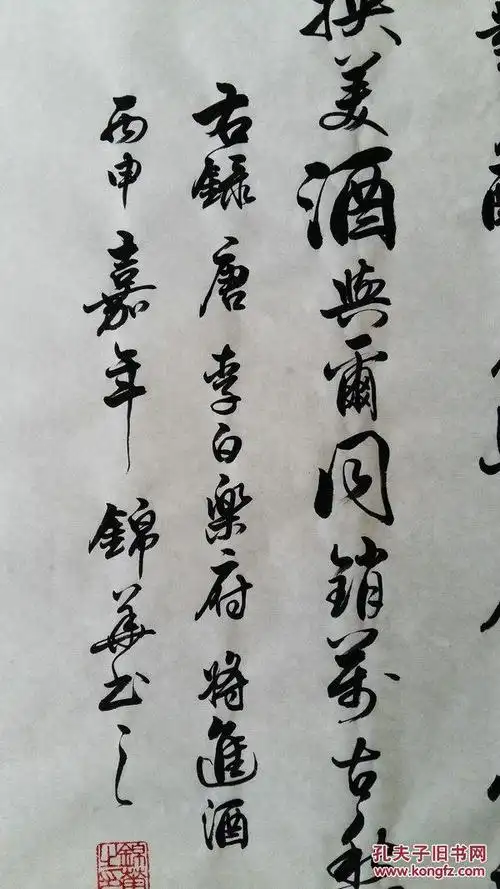 換美酒與爾同銷萬古
右録唐李白樂府將進酒
丙申嘉年錦華書之
孔夫子旧书网
www.kongfz.com